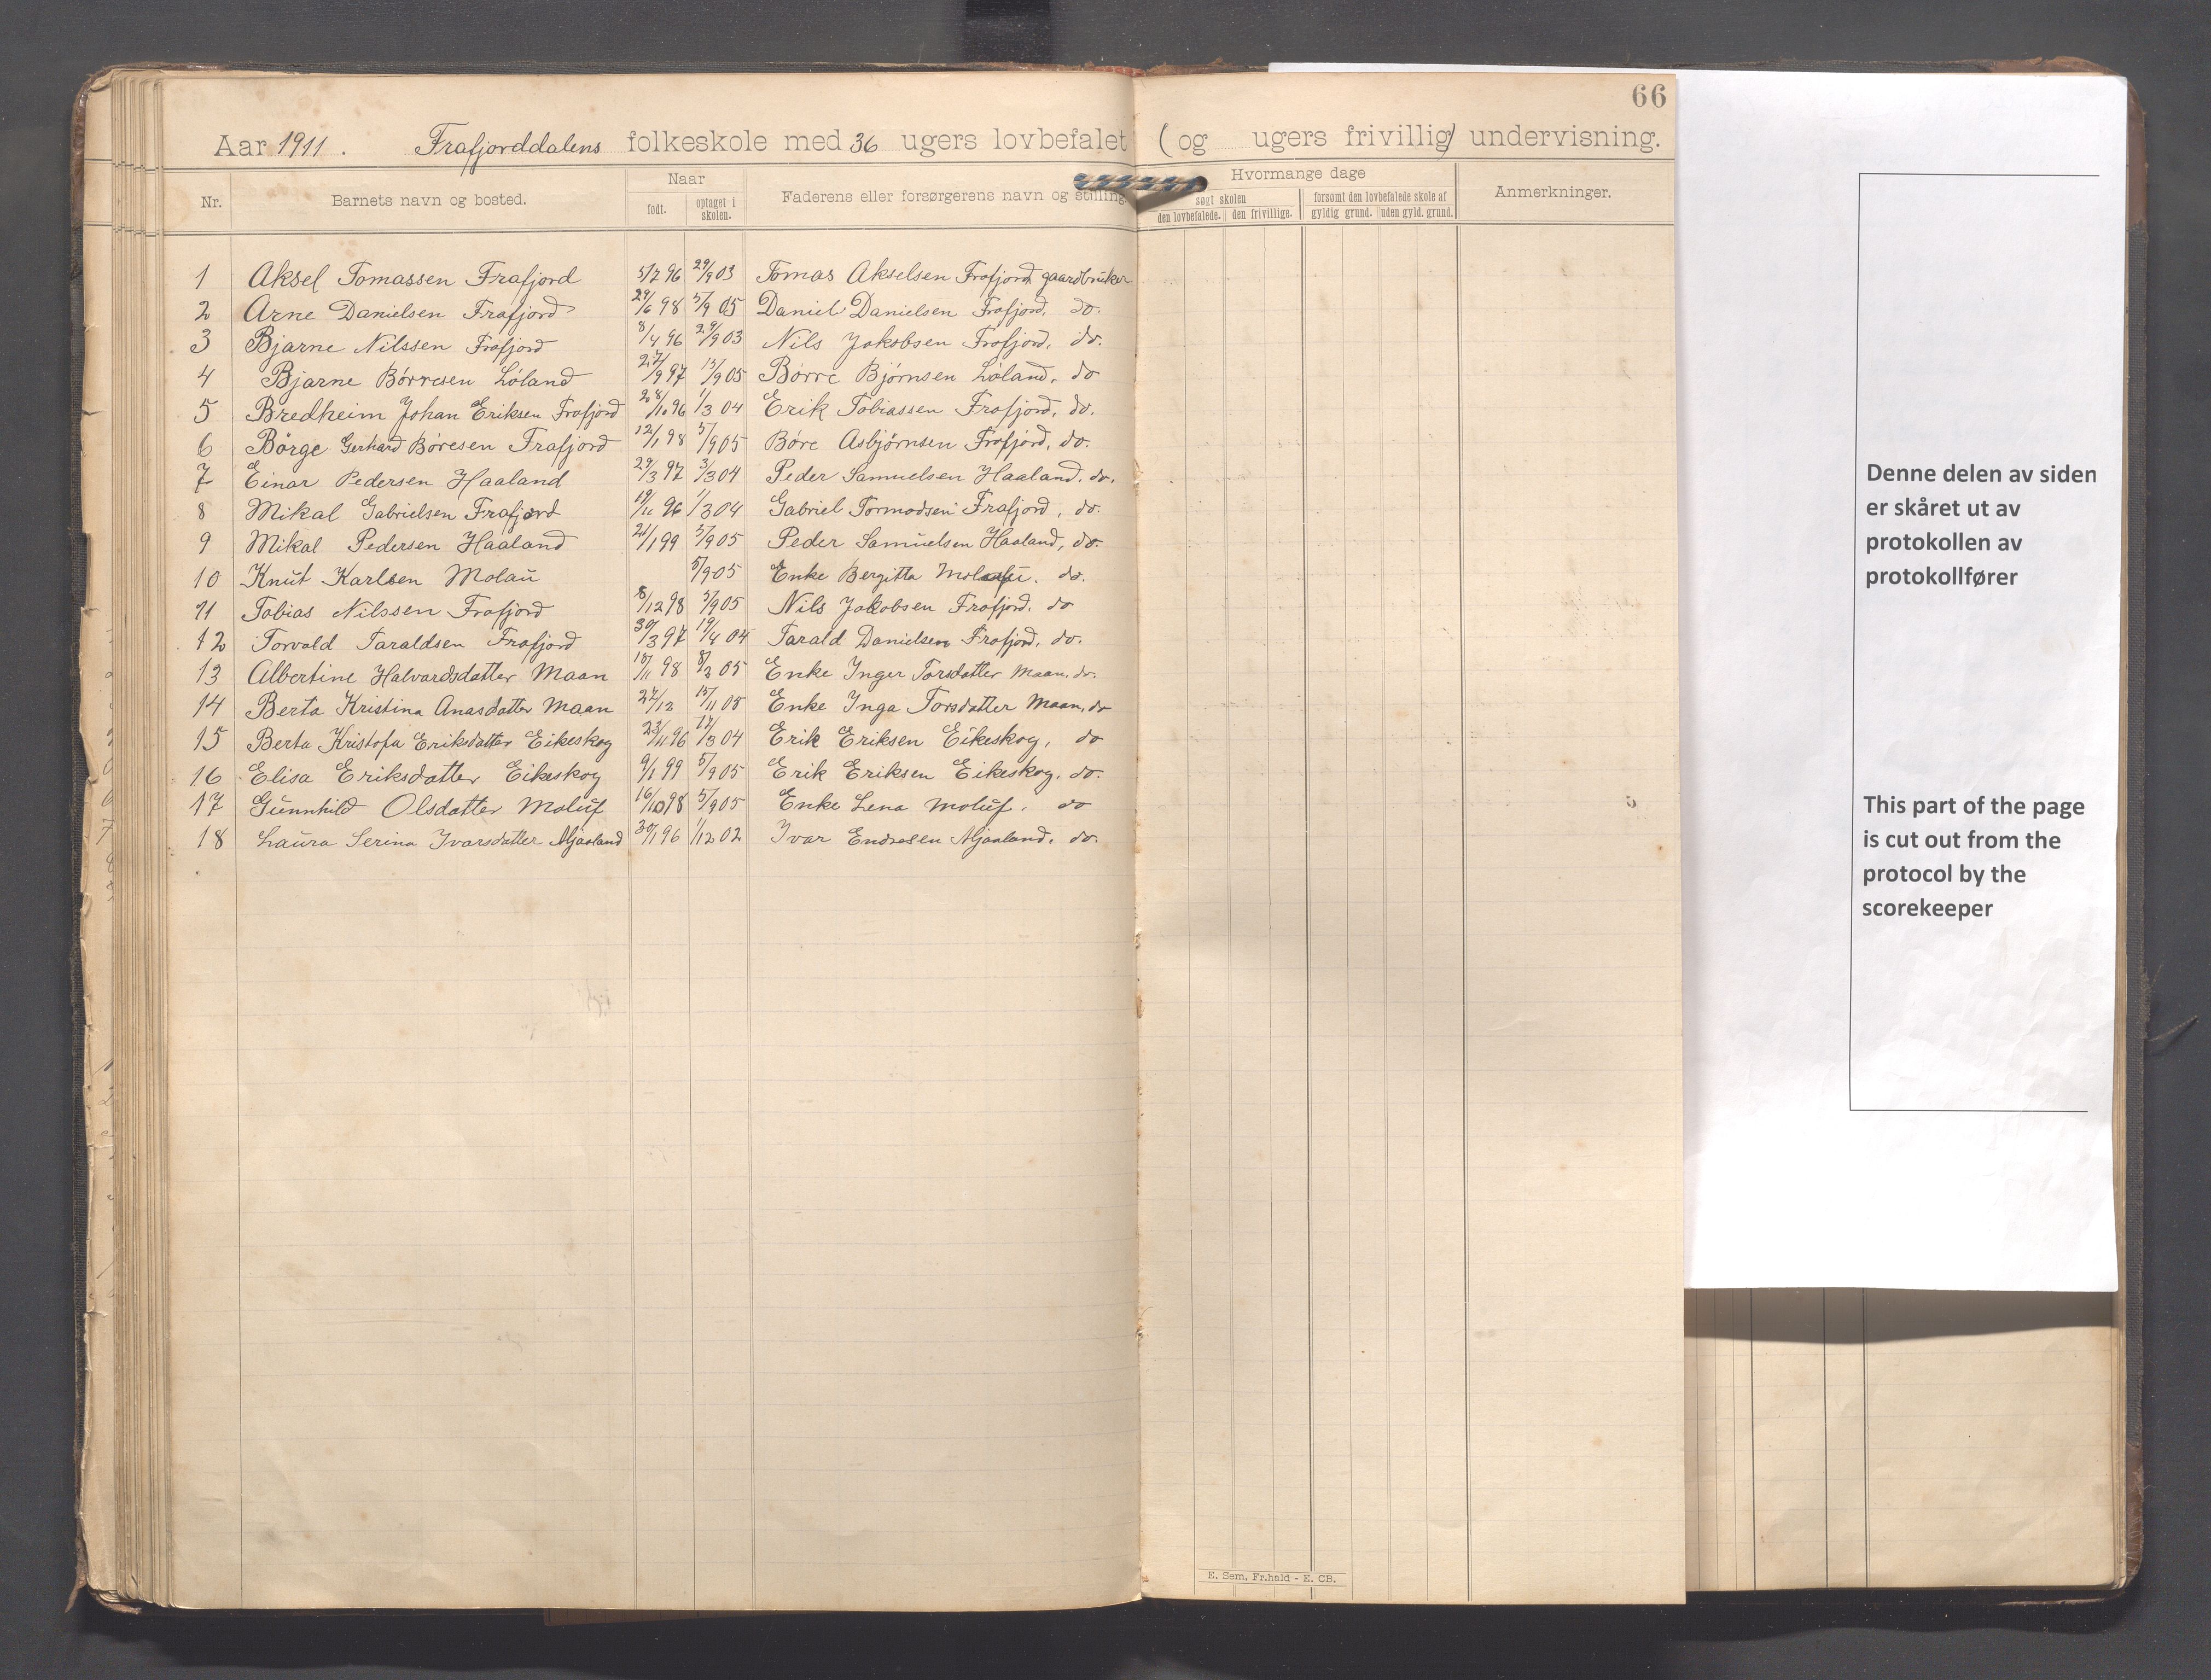 66
Aar 1911. Frafjorddalens folkeskole med 36 ugers lovbefalet (og ugers frivillig) undervisning.
Nr. Barnets navn og bosted. Naar født. optaget i skolen. Faderens eller forsørgerens navn og stilling Hvormange dage søgt skolen den lovbefalede. den frivillige. forsømt den lovbefalede skole af gyldig grund. uden gyld. grund. Anmerkninger.
1 Aksel Tomassen Frafjord 5/7 96 29/9 03 Tomas Akselsen Frafjord gaardbruker
2 Arne Danielsen Frafjord 29/6 98 5/9 05 Daniel Danielsen Frafjord, do.
3 Bjarne Nilssen Frafjord 8/4 96 29/9 03 Nils Jakobsen Frafjord, do.
4 Bjarne Børresen Løland 27/9 97 15/9 05 Børre Bjørnsen Løland, do
5 Bredheim Johan Eriksen Frafjord 28/10 96 1/3 04 Erik Tobiassen Frafjord, do.
6 Børge Gerhard Børesen Frafjord 12/1 98 5/9 05 Børe Asbjørnsen Frafjord, do.
7 Einar Pedersen Haaland 29/3 97 3/3 04 Peder Samuelsen Haaland, do.
8 Mikal Gabrielsen Frafjord 19/11 96 1/3 04 Gabriel Tormodsen Frafjord, do.
9 Mikal Pedersen Haaland 21/1 99 5/9 05 Peder Samuelsen Haaland, do.
10 Knut Karlsen Molau 5/9 05 Enke Bergitta do.
11 Tobias Nilssen Frafjord 8/12 98 5/9 05 Nils Jakobsen Frafjord, do
12 Torvald Taraldsen Frafjord 30/3 97 19/4 04 Tarald Danielsen Frafjord, do.
13 Albertine Halvardsdatter Maan 18/11 98 8/2 05 Enke Inger Torsdatter Maan, do.
14 Berta Kristina Anasdatter Maan 27/12 15/11 05 Enke Inga Torsdatter Maan, do
15 Berta Kristofa Eriksdatter Eikeskog 23/11 96 17/3 04 Erik Eriksen Eikeskog, do
16 Elisa Eriksdatter Eikeskog 9/1 99 5/9 05 Erik Eriksen Eikeskog, do.
17 Gunnhild Olsdatter Moluf 16/10 98 5/9 05 Enke Lena Moluf, do
18 Laura Serina Ivarsdatter Mjaaland 30/1 96 1/12 02 Ivar Endresen Mjaaland, do.
E. Sem, Fr.hald - E. CB.
Denne delen av siden
er skåret ut av
protokollen av
protokollfører
This part of the page
is cut out from the
protocol by the
scorekeeper